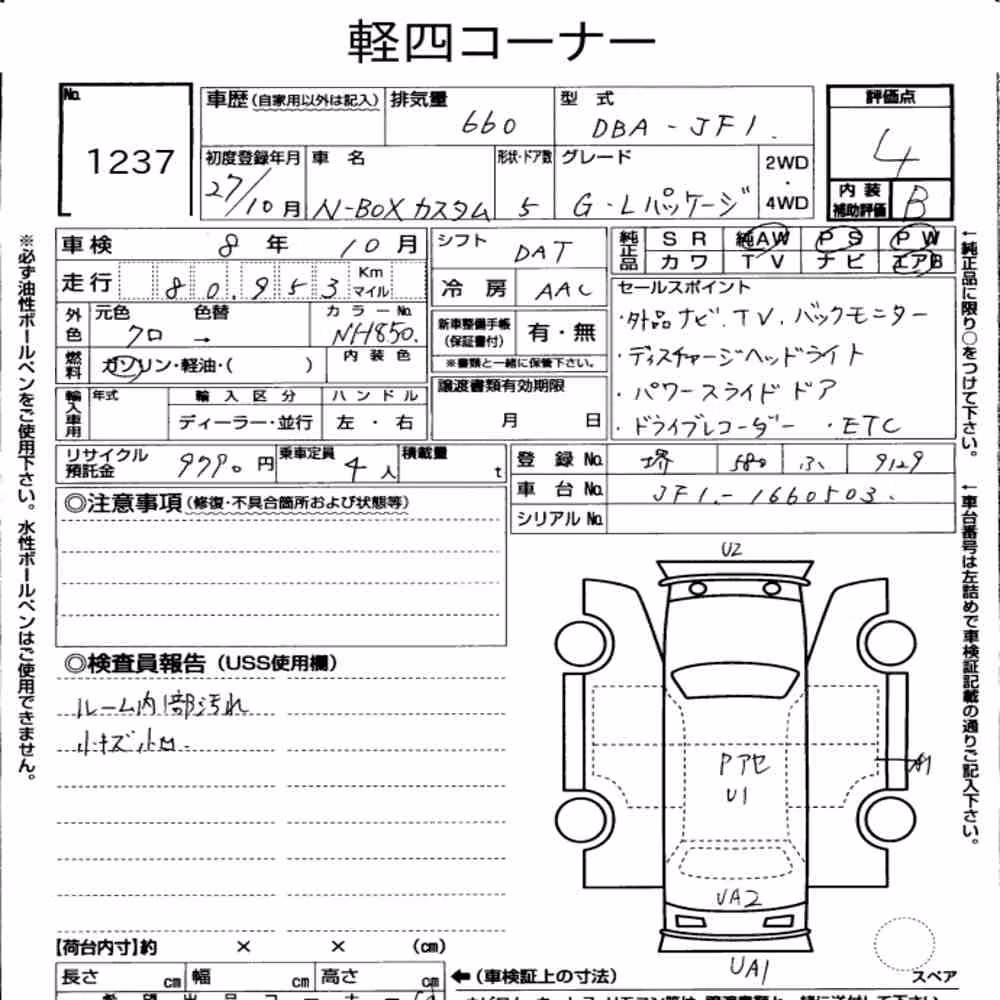 軽四コーナー
No. 1237
車歴(自家用以外は記入) 排気量 660 型式 DBA-JF1.
評価点 4
初度登録年月 27/10月 車名 N-BOXカスタム 形状・ドア数 5 グレード G・Lパッケージ 2WD・4WD
内装補助評価 B
車検 8年 10月 シフト DAT 純正品 SR 純AW PS PW
カワ TV ナビ エアB
走行 80.953 Km マイル 冷房 AAC
外色 元色 クロ → 色替 カラーNo. NH850.
燃料 ガソリン・軽油・( ) 内装色
新車整備手帳(保証書付) 有・無
※書類と一緒に保管下さい。
セールスポイント
・外品ナビ.TV.バックモニター
・ディスチャージヘッドライト
・パワースライドドア
・ドライブレコーダー ・ETC
輸入車用 年式 輸入区分 ハンドル
ディーラー・並行 左・右
譲渡書類有効期限
月 日
リサイクル預託金 9790円 乗車定員 4人 積載量 t
登録No. 堺 580 ふ 9129
車台No. JF1.-1660503.
シリアルNo.
◎注意事項(修復・不具合箇所および状態等)
◎検査員報告(USS使用欄)
ルーム内部汚れ
小キズ小凹.
U2
Pアセ
U1
A1
UA2
UA1
スペア
【荷台内寸】約 × × (cm)
長さ cm 幅 cm 高さ cm
←(車検証上の寸法)
※必ず油性ボールペンをご使用下さい。水性ボールペンはご使用できません。
←純正品に限り○をつけて下さい。
←車台番号は左詰めで車検証記載の通りご記入下さい。